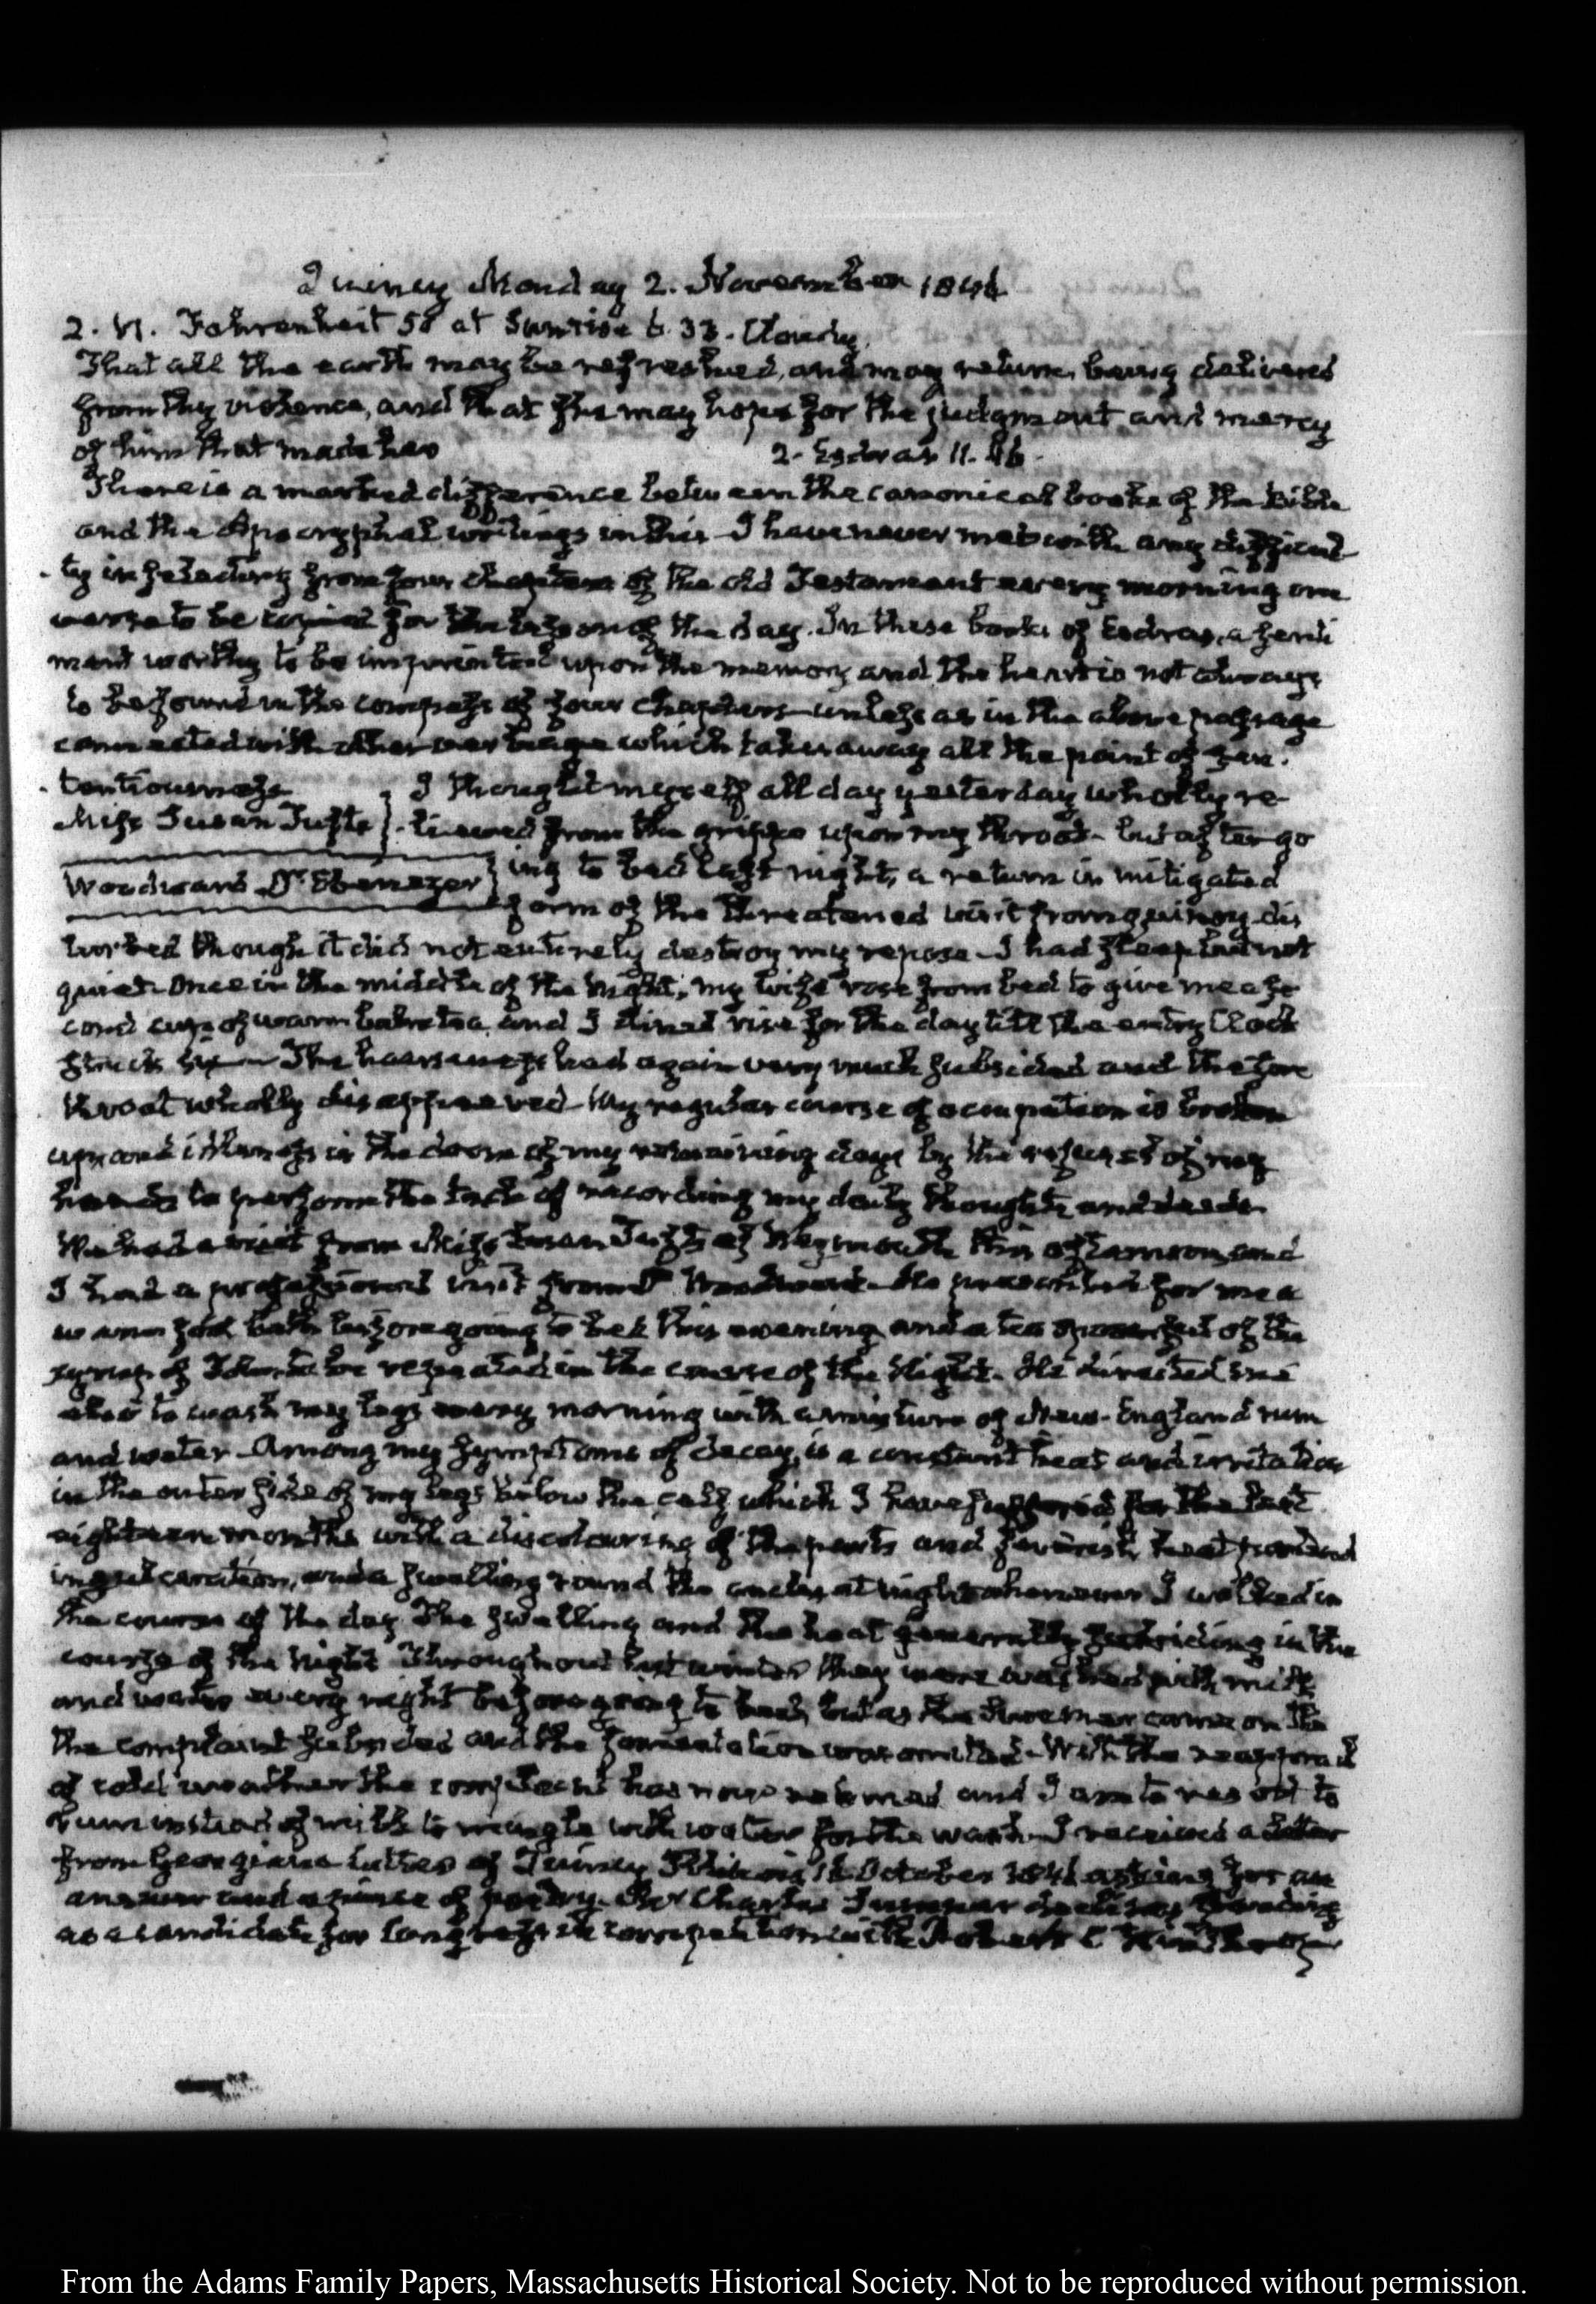 Quincy Monday 2. November 1846
2. VI. Fahrenheit 58 at Sunrise 6. 33. Cloudy.
That all the earth may be refreshed, and may return, being delivered
from thy violence, and that she may hope for the judgment and mercy
of him that made her 2. Esdras 11. 46.
There is a marked difference between the canonical books of the Bible
and the Apocryphal writings in this I have never met with any difficul-
ty in selecting from four chapters of the old Testament every morning one
verse to be copied for the lesson of the day. In these books of Esdras, a senti
ment worthy to be imprinted upon the memory and the heart is not always
to be found in the compass of four chapters unless as in the above passage
connected with other verbiage which takes away all the point of sen-
tentiousness I thought myself all day yesterday wholly re-
Miss Susan Tufts lieved from the grippe upon my throat- but after go
Woodward Dr. Ebenezer ing to bed last night, a return in mitigated
form of the threatened visit from quinsy dis
turbed though it did not entirely destroy my repose- I had sleep but not
quiet- Once in the middle of the night, my wife rose from bed to give me a se
cond cup of warm balm tea, and I did not rise for the day till the entry Clock
struck six- The hoarseness had again very much subsided and the sore
throat wholly disappeared- My regular course of occupation is broken
up and is the doom of my remaining days by the refusal of my
hands to perform the task of recording my daily thoughts and deeds-
We had a visit from Miss Susan Tufts of Weymouth this afternoon, and
I had a professional visit from Dr. Woodward- He prescribed for me a
warm foot bath before going to bed this evening and a tea spoonful of the
syrup of to be repeated in the course of the Night. He directed me
also to wash my legs every morning with a mixture of New-England rum
and water- Among my symptoms of decay, is a constant heat and irritation
in the outer side of my legs below the calf which I have suffered for the last
eighteen months with a discolouring of the parts and feverish heat
ing ulceration, and a swelling round the ancles at night whenever I walked in
the course of the day. The swelling and the heat generally subsiding in the
course of the night Throughout last winter they were washed with milk
and water every night before going to bed, but as the Summer came on the
the complaint subsided and the fomentation was omitted- With the
of cold weather the complaint has now returned and I am to resort to
rum instead of milk to mingle with water for the wash- I received a letter
from Georgiana of Quincy Illinois 12 October 1846 asking for an
answer and a piece of poetry. Mr Charles Sumner declines standing
as a candidate for Congress in competition with Robert C Winthrop
From the Adams Family Papers, Massachusetts Historical Society. Not to be reproduced without permission.